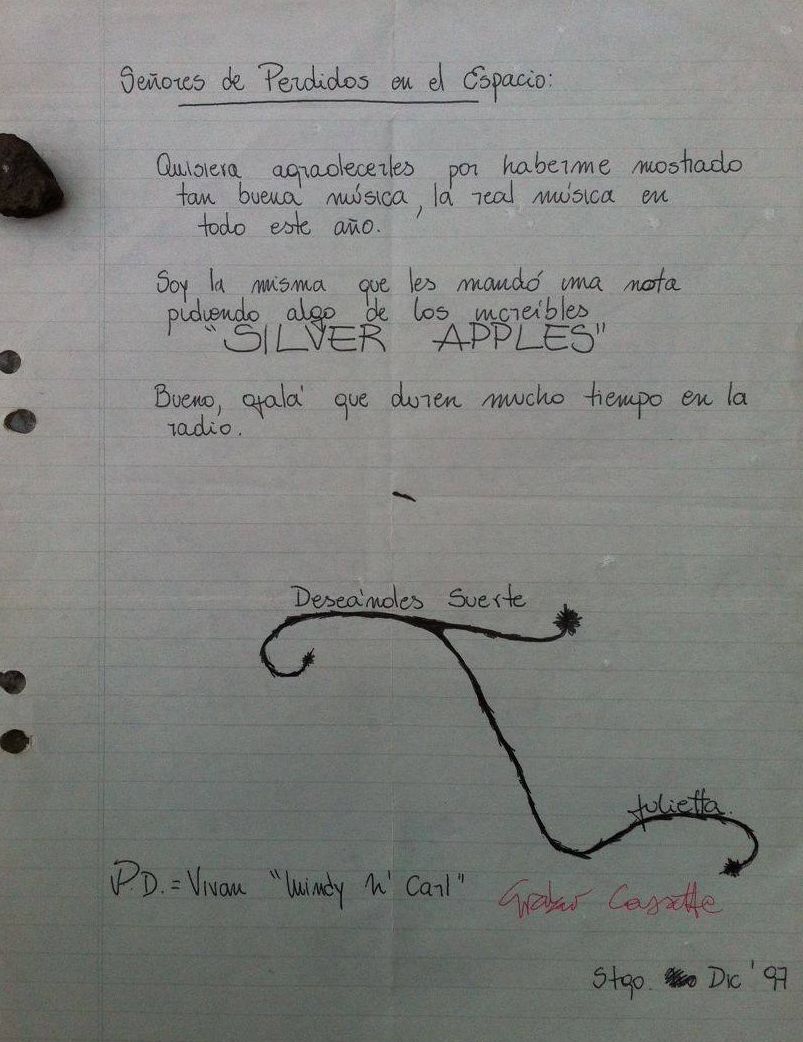 Señores de Perdidos en el Espacio:
Quisiera agradecerles por haberme mostrado
tan buena música, la real música en
todo este año.
Soy la misma que les mandó una nota
pidiendo algo de los increíbles
"SILVER APPLES"
Bueno, ojalá que duren mucho tiempo en la
radio.
Deseándoles Suerte
Julietta.
P.D.=Vivan "Windy n' Carl"
Grabar Cassette
Stgo. Dic '97